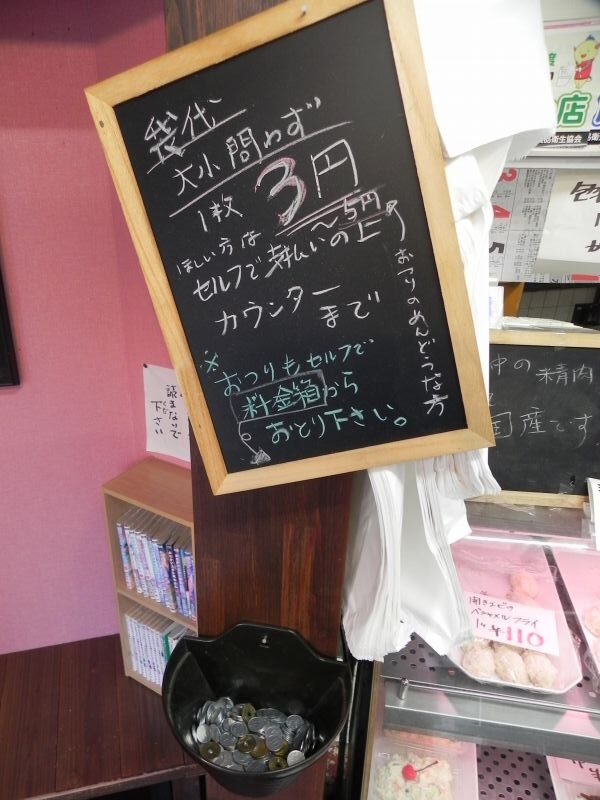 袋代
大小問わず
1枚 3円
〜5円
ほしい方は
セルフで支払いの上
カウンター
まで
おつりのめんどうな方
※
おつりもセルフで
料金箱から
おとり下さい。
読まないで
下さい
店
衛生協会
中の精肉
国産です
開きエビの
ベシャメルフライ
110